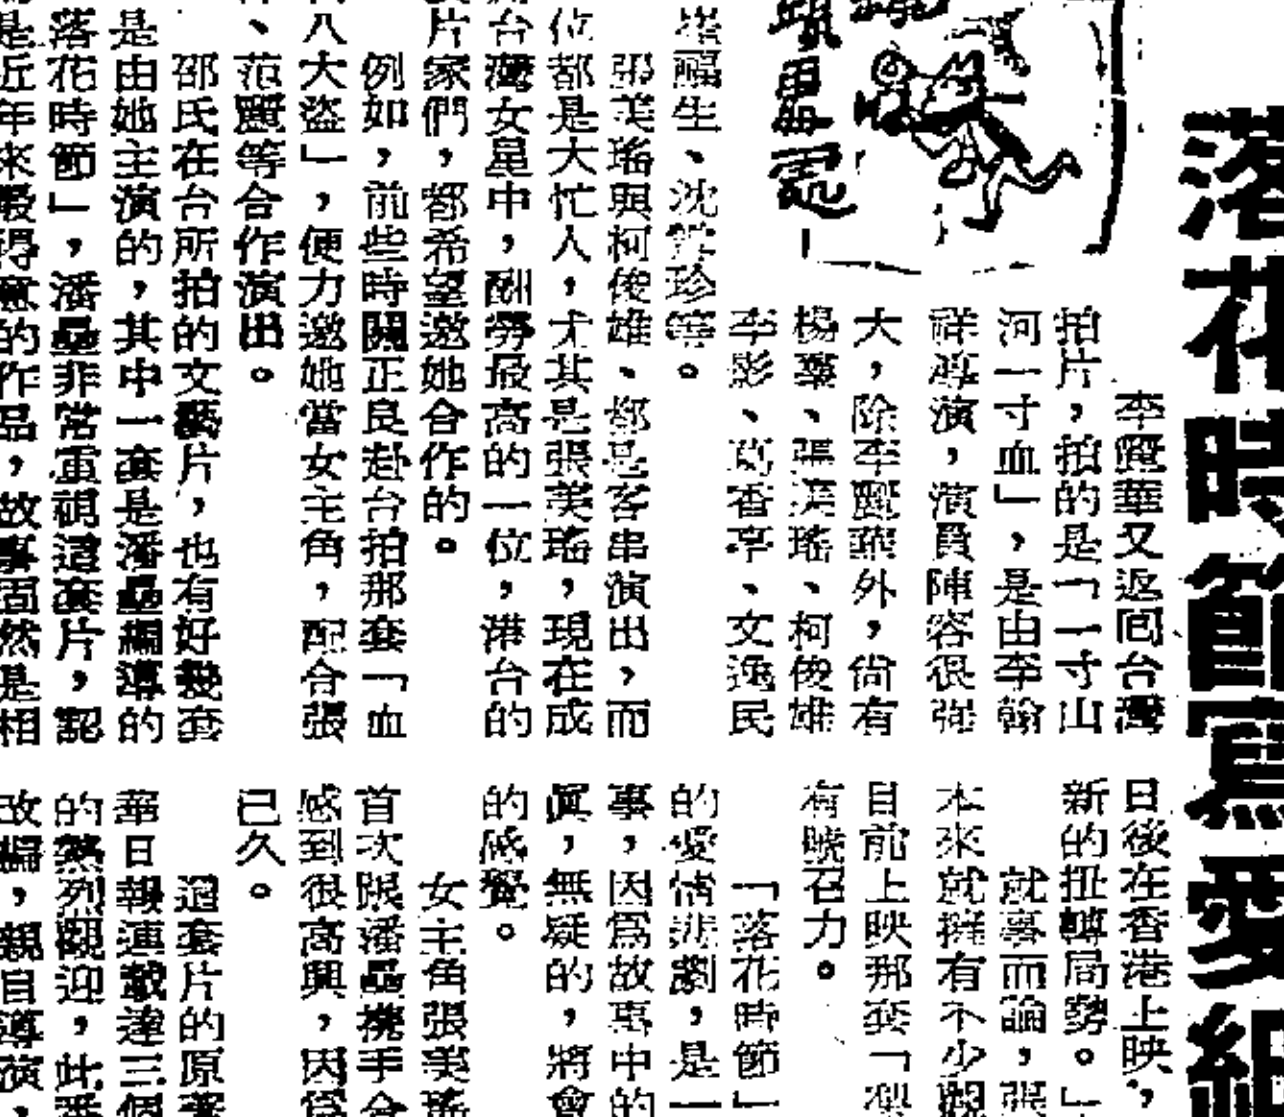 落花時節寫愛細
李麗華又返回台灣
拍片,拍的是「一寸山
河一寸血」,是由李翰
祥導演,演員陣容很强
大,除李麗華外,尙有
楊羣、張美瑤、柯俊雄
李影、葛香亭、文逸民
福生、沈雪珍等。
張美瑤與柯俊雄、都是客串演出,而
位都是大忙人,尤其是張美瑤,現在成
台灣女星中,酬勞最高的一位,港台的
片家們,都希望邀她合作的。
例如,前些時關正良赴台拍那套「血
八大盜」,便力邀她當女主角,配合張
、范麗等合作演出。
邵氏在台所拍的文藝片,也有好幾套
是由她主演的,其中一套是潘壘編導的
落花時節」,潘壘非常重視這套片,認
是近年來最得意的作品,故事固然是相
日後在香港上映,
新的扭轉局勢。」
就事而論,張
本來就擁有不少觀
目前上映那套「烈
有號召力。
「落花時節」
的愛情悲劇,是一
事,因爲故事中的
眞,無疑的,將會
的感覺。
女主角張美瑤
首次跟潘壘携手合
感到很高興,因爲
已久。
這套片的原著
華日報連載達三個
的熱烈歡迎,此番
改編,親自導演,